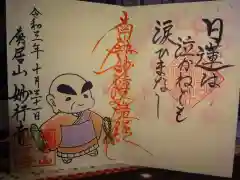 日蓮は
泣かねども
涙ひまなし
南無妙法蓮華経
令和三年十月三十一日
長崑山 妙行寺